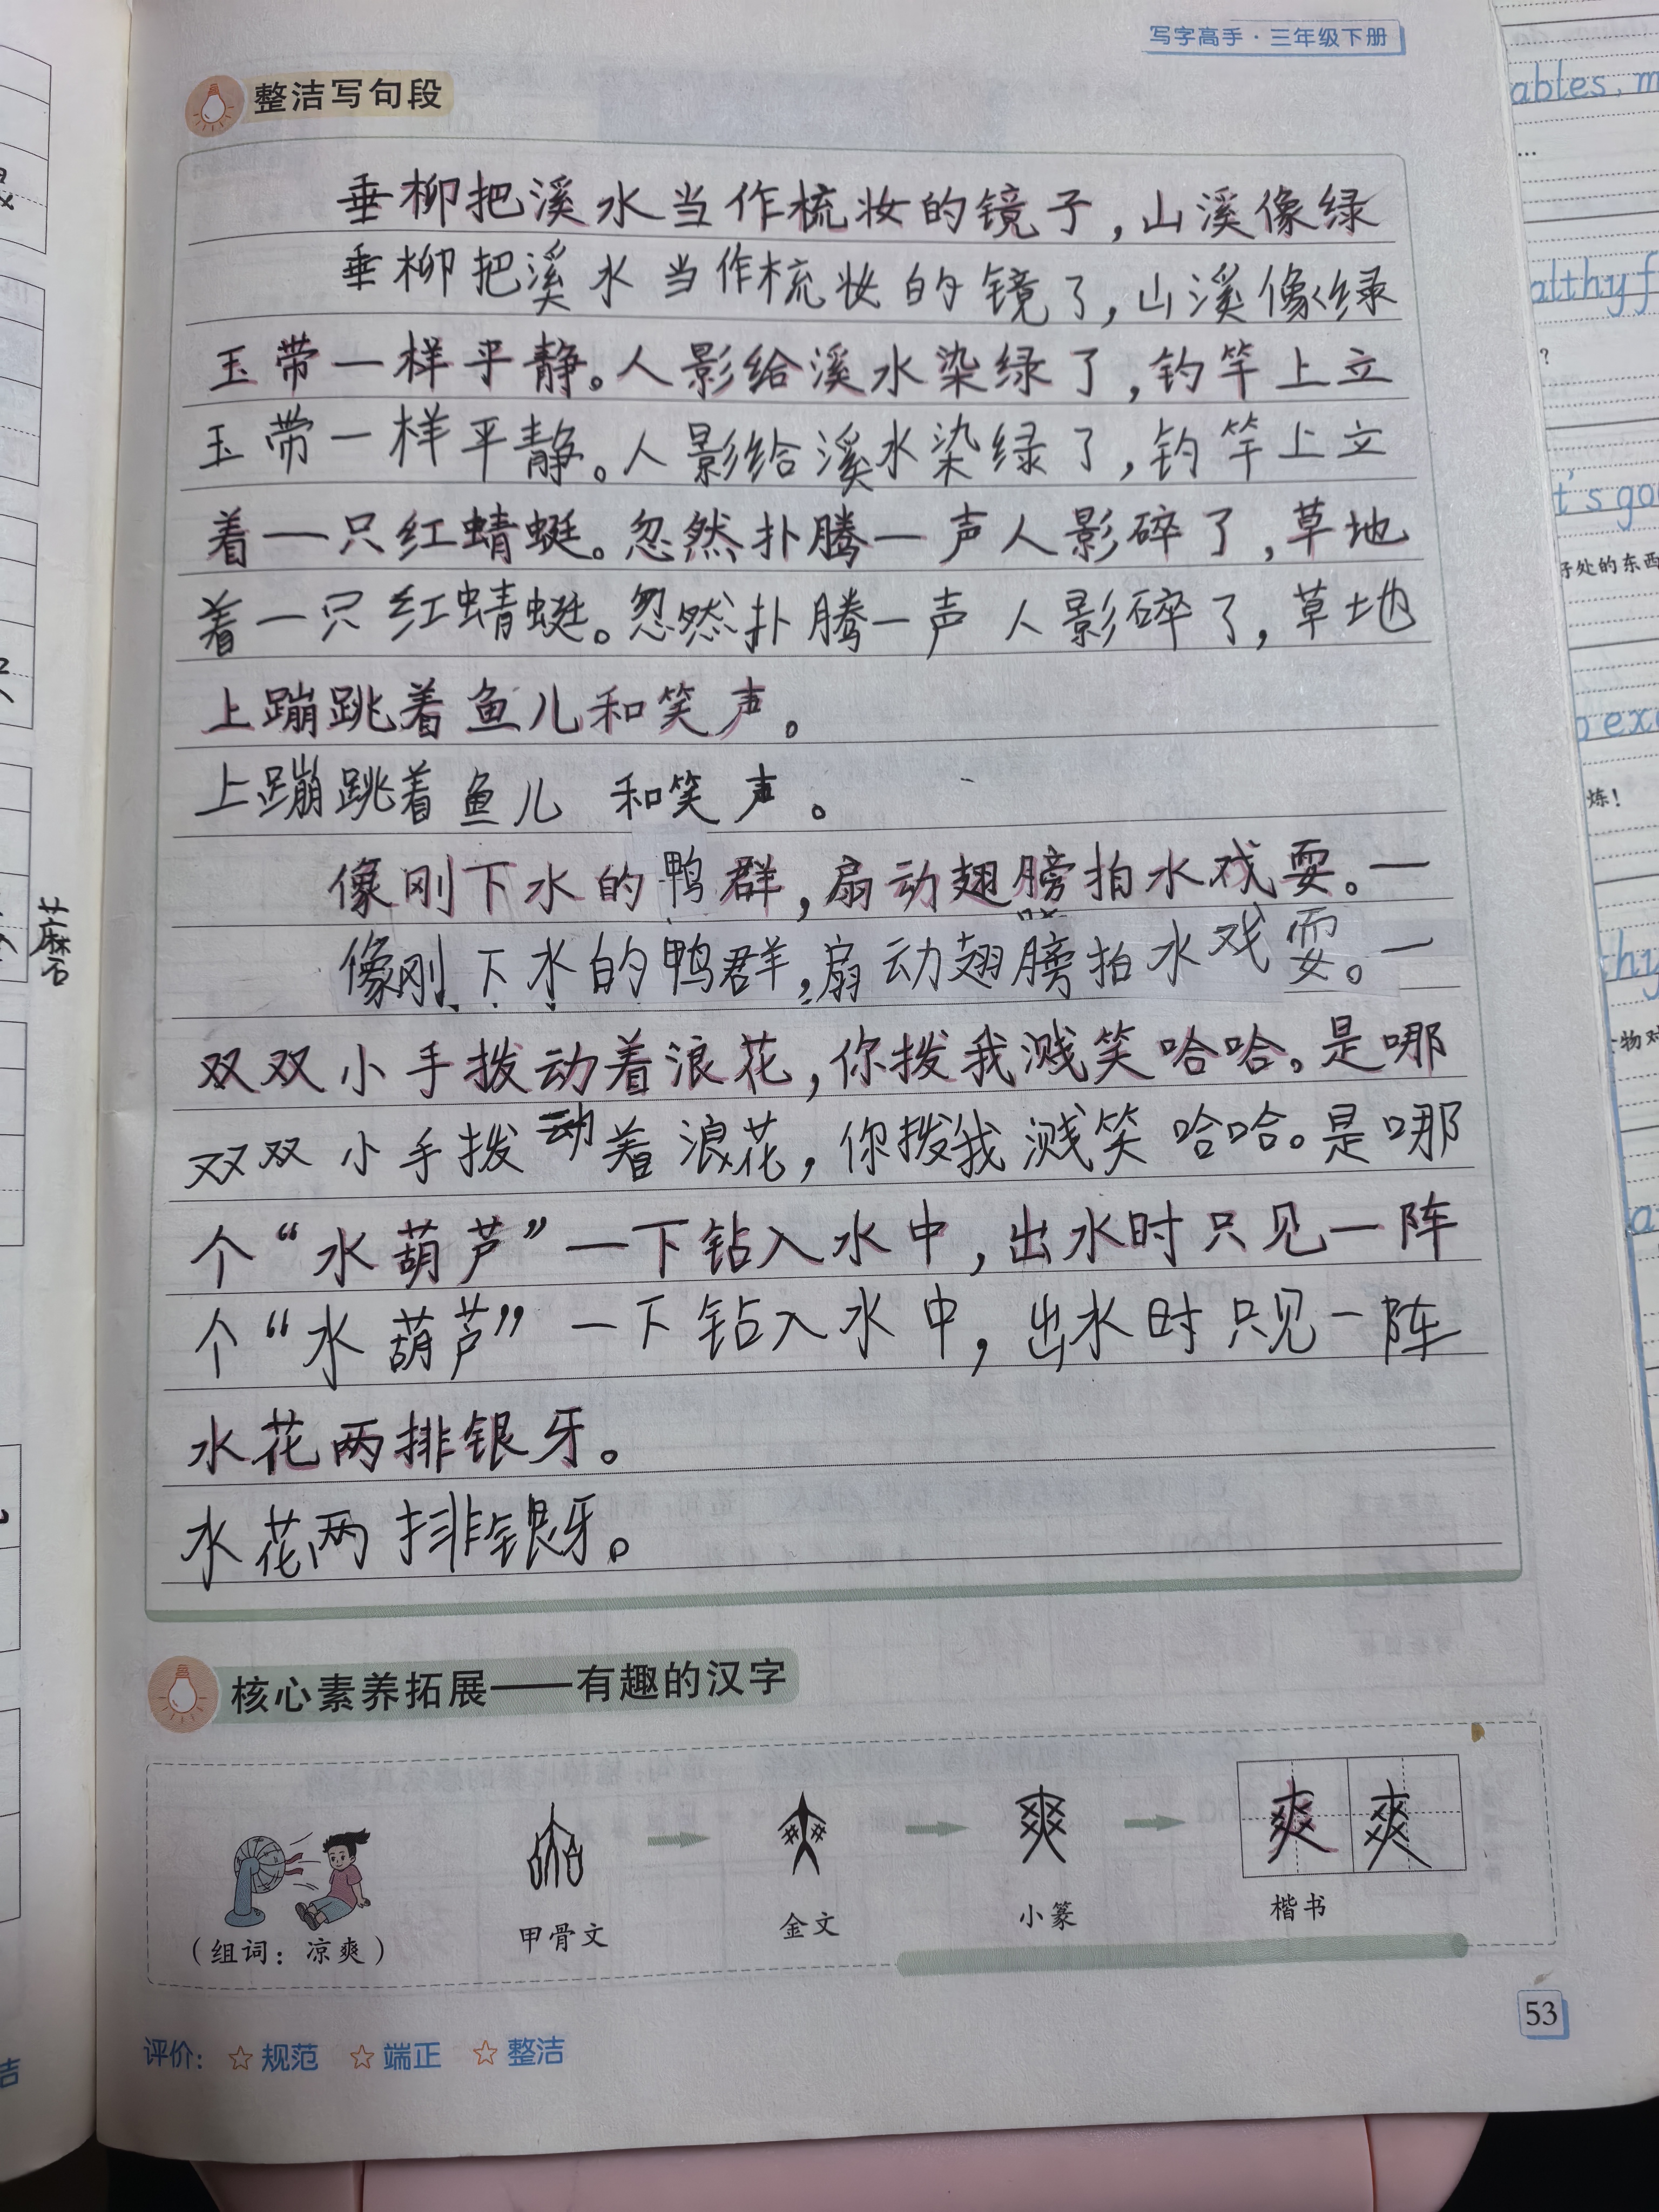 写字高手·三年级下册
整洁写句段
垂柳把溪水当作梳妆的镜子，山溪像绿
垂柳把溪水当作梳妆的镜了，山溪像绿
玉带一样平静。人影给溪水染绿了，钓竿上立
玉带一样平静。人影给溪水染绿了，钓竿上立
着一只红蜻蜓。忽然扑腾一声人影碎了，草地
着一只红蜻蜓。忽然扑腾一声人影碎了，草地
上蹦跳着鱼儿和笑声。
上蹦跳着鱼儿和笑声。
像刚下水的鸭群，扇动翅膀拍水戏耍。一
像刚下水的鸭群，扇动翅膀拍水戏耍。一
双双小手拨动着浪花，你拨我溅笑哈哈。是哪
双双小手拨动着浪花，你拨我溅笑哈哈。是哪
个“水葫芦”一下钻入水中，出水时只见一阵
个“水葫芦”一下钻入水中，出水时只见一阵
水花两排银牙。
水花两排银牙。
核心素养拓展——有趣的汉字
爽 爽 爽
（组词：凉爽） 甲骨文 金文 小篆 楷书
53
评价：☆规范 ☆端正 ☆整洁
蘑
ables, m
...
althy f
?
t's go
好处的东西
o ex
炼！
thy
物对
a
洁